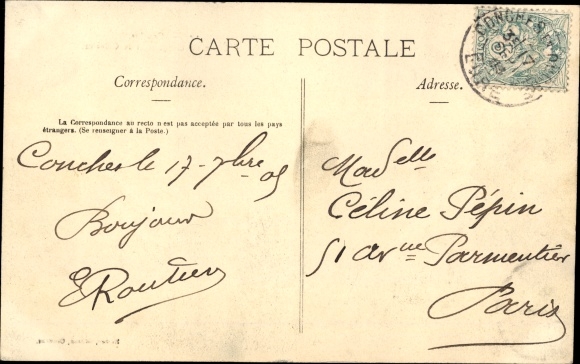 CARTE POSTALE
Correspondance.
Adresse.
La Correspondance au recto n'est pas acceptée par tous les pays
étrangers. (Se renseigner à la Poste.)
Conches le 17-7bre 05
Bonjour
E Routier
Madelle
Céline Pépin
51 Avnue Parmentier
Paris
CONCHES
EURE